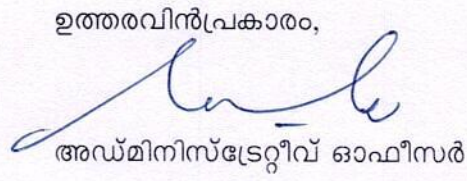 ഉത്തരവിൻപ്രകാരം,
അഡ്മിനിസ്ട്രേറ്റീവ് ഓഫീസർ